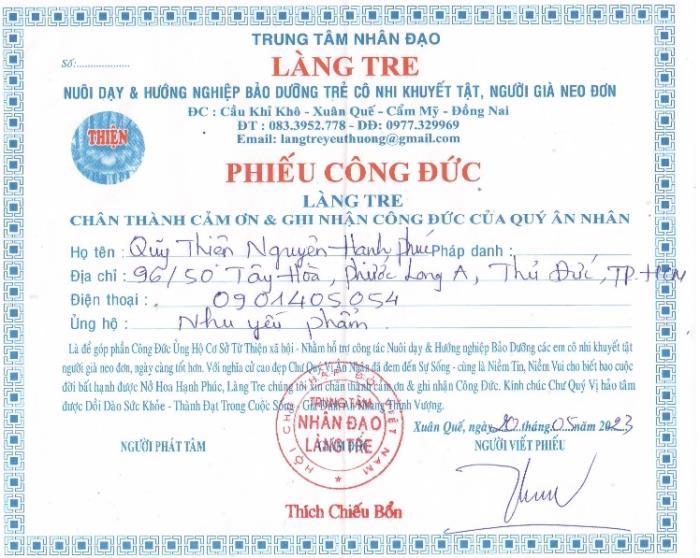 TRUNG TÂM NHÂN ĐẠO
Số:
LÀNG TRE
NUÔI DẠY & HƯỚNG NGHIỆP BẢO DƯỠNG TRẺ CÔ NHI KHUYẾT TẬT, NGƯỜI GIÀ NEO ĐƠN
ĐC : Cầu Khỉ Khô - Xuân Quế - Cẩm Mỹ - Đồng Nai
ĐT : 083.3952.778 - DĐ: 0977.329969
Email: langtreyeuthuong@gmail.com
THIỆN
PHIẾU CÔNG ĐỨC
LÀNG TRE
CHÂN THÀNH CẢM ƠN & GHI NHẬN CÔNG ĐỨC CỦA QUÝ ÂN NHÂN
Họ tên : Quỹ Thiện Nguyện Hạnh phúc Pháp danh :
Địa chỉ : 96/50 Tây Hòa, phước Long A, Thủ Đức, TP. HCM
Điện thoại : 0901405054
Ủng hộ : Nhu yếu phẩm
Là để góp phần Công Đức Ủng Hộ Cơ Sở Từ Thiện xã hội - Nhằm hỗ trợ công tác Nuôi dạy & Hướng nghiệp Bảo Dưỡng các em cô nhi khuyết tật
người già neo đơn, ngày càng tốt hơn. Với nghĩa cử cao đẹp Chư Quý Vị Ân Nhân đã đem đến Sự Sống - cùng là Niềm Tin, Niềm Vui cho biết bao cuộc
đời bất hạnh được Nở Hoa Hạnh Phúc, Làng Tre chúng tôi xin chân thành cảm ơn & ghi nhận Công Đức. Kính chúc Chư Quý Vị hảo tâm
được Dồi Dào Sức Khỏe - Thành Đạt Trong Cuộc Sống - Gia Đình An Khang Thịnh Vượng.
HỘI CHỮ THẬP ĐỎ VIỆT NAM
TRUNG TÂM
NHÂN ĐẠO
LÀNG TRE
Xuân Quế, ngày 20 tháng 05 năm 2023
NGƯỜI PHÁT TÂM GIÁM ĐỐC NGƯỜI VIẾT PHIẾU
Thích Chiếu Bổn